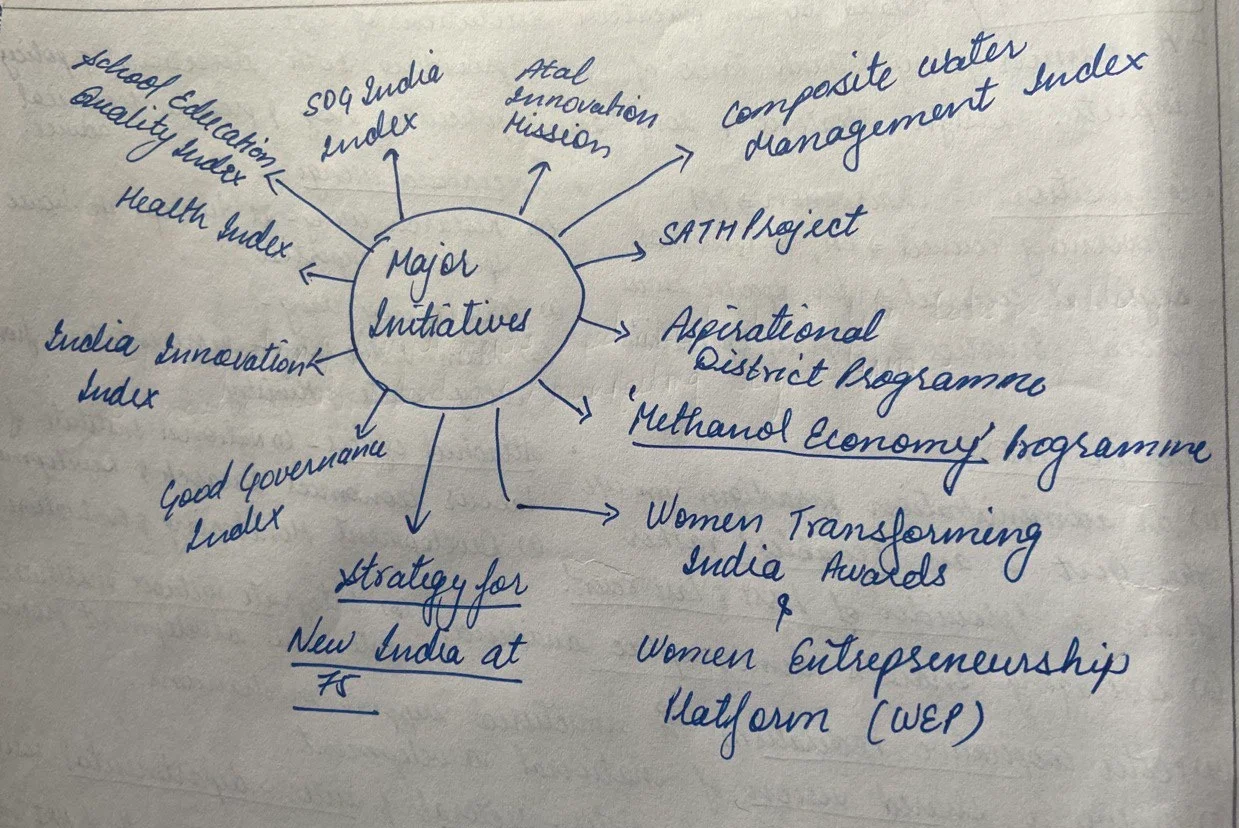 School Education
Quality Index
SDG India
Index
Atal
Innovation
Mission
Composite Water
Management Index
Health Index
SATH Project
Major
Initiatives
India Innovation
Index
Aspirational
District Programme
'Methanol Economy' Programme
Good Governance
Index
Women Transforming
India Awards
&
Women Entrepreneurship
Platform (WEP)
Strategy for
New India at
75